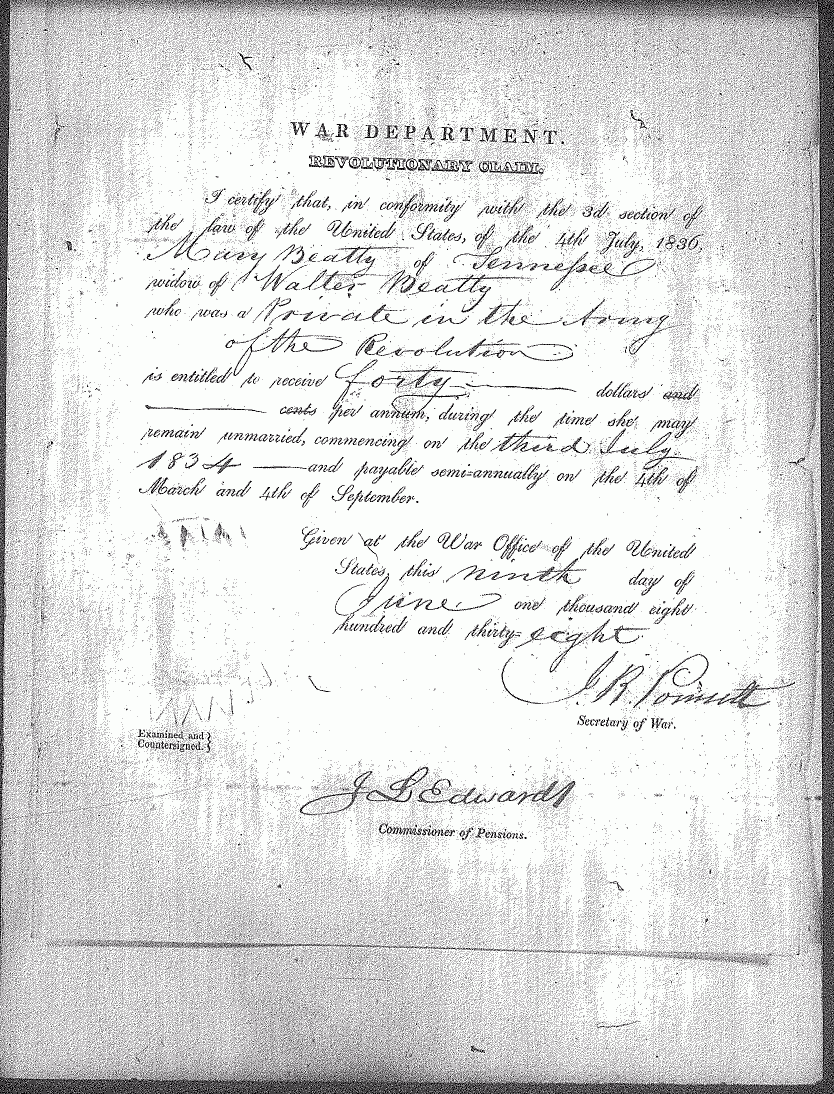 WAR DEPARTMENT.
REVOLUTIONARY CLAIM.
I certify that, in conformity with the 3d section of
the law of the United States, of the 4th July, 1836,
Mary Beatty of Tennessee
widow of Walter Beatty
who was a Private in the Army
of the Revolution
is entitled to receive forty dollars and
cents per annum, during the time she may
remain unmarried, commencing on the third July
1834 and payable semi-annually on the 4th of
March and 4th of September.
Given at the War Office of the United
States, this ninth day of
June one thousand eight
hundred and thirty-eight
J. R. Poinsett
Secretary of War.
Examined and
Countersigned.
J L Edwards
Commissioner of Pensions.